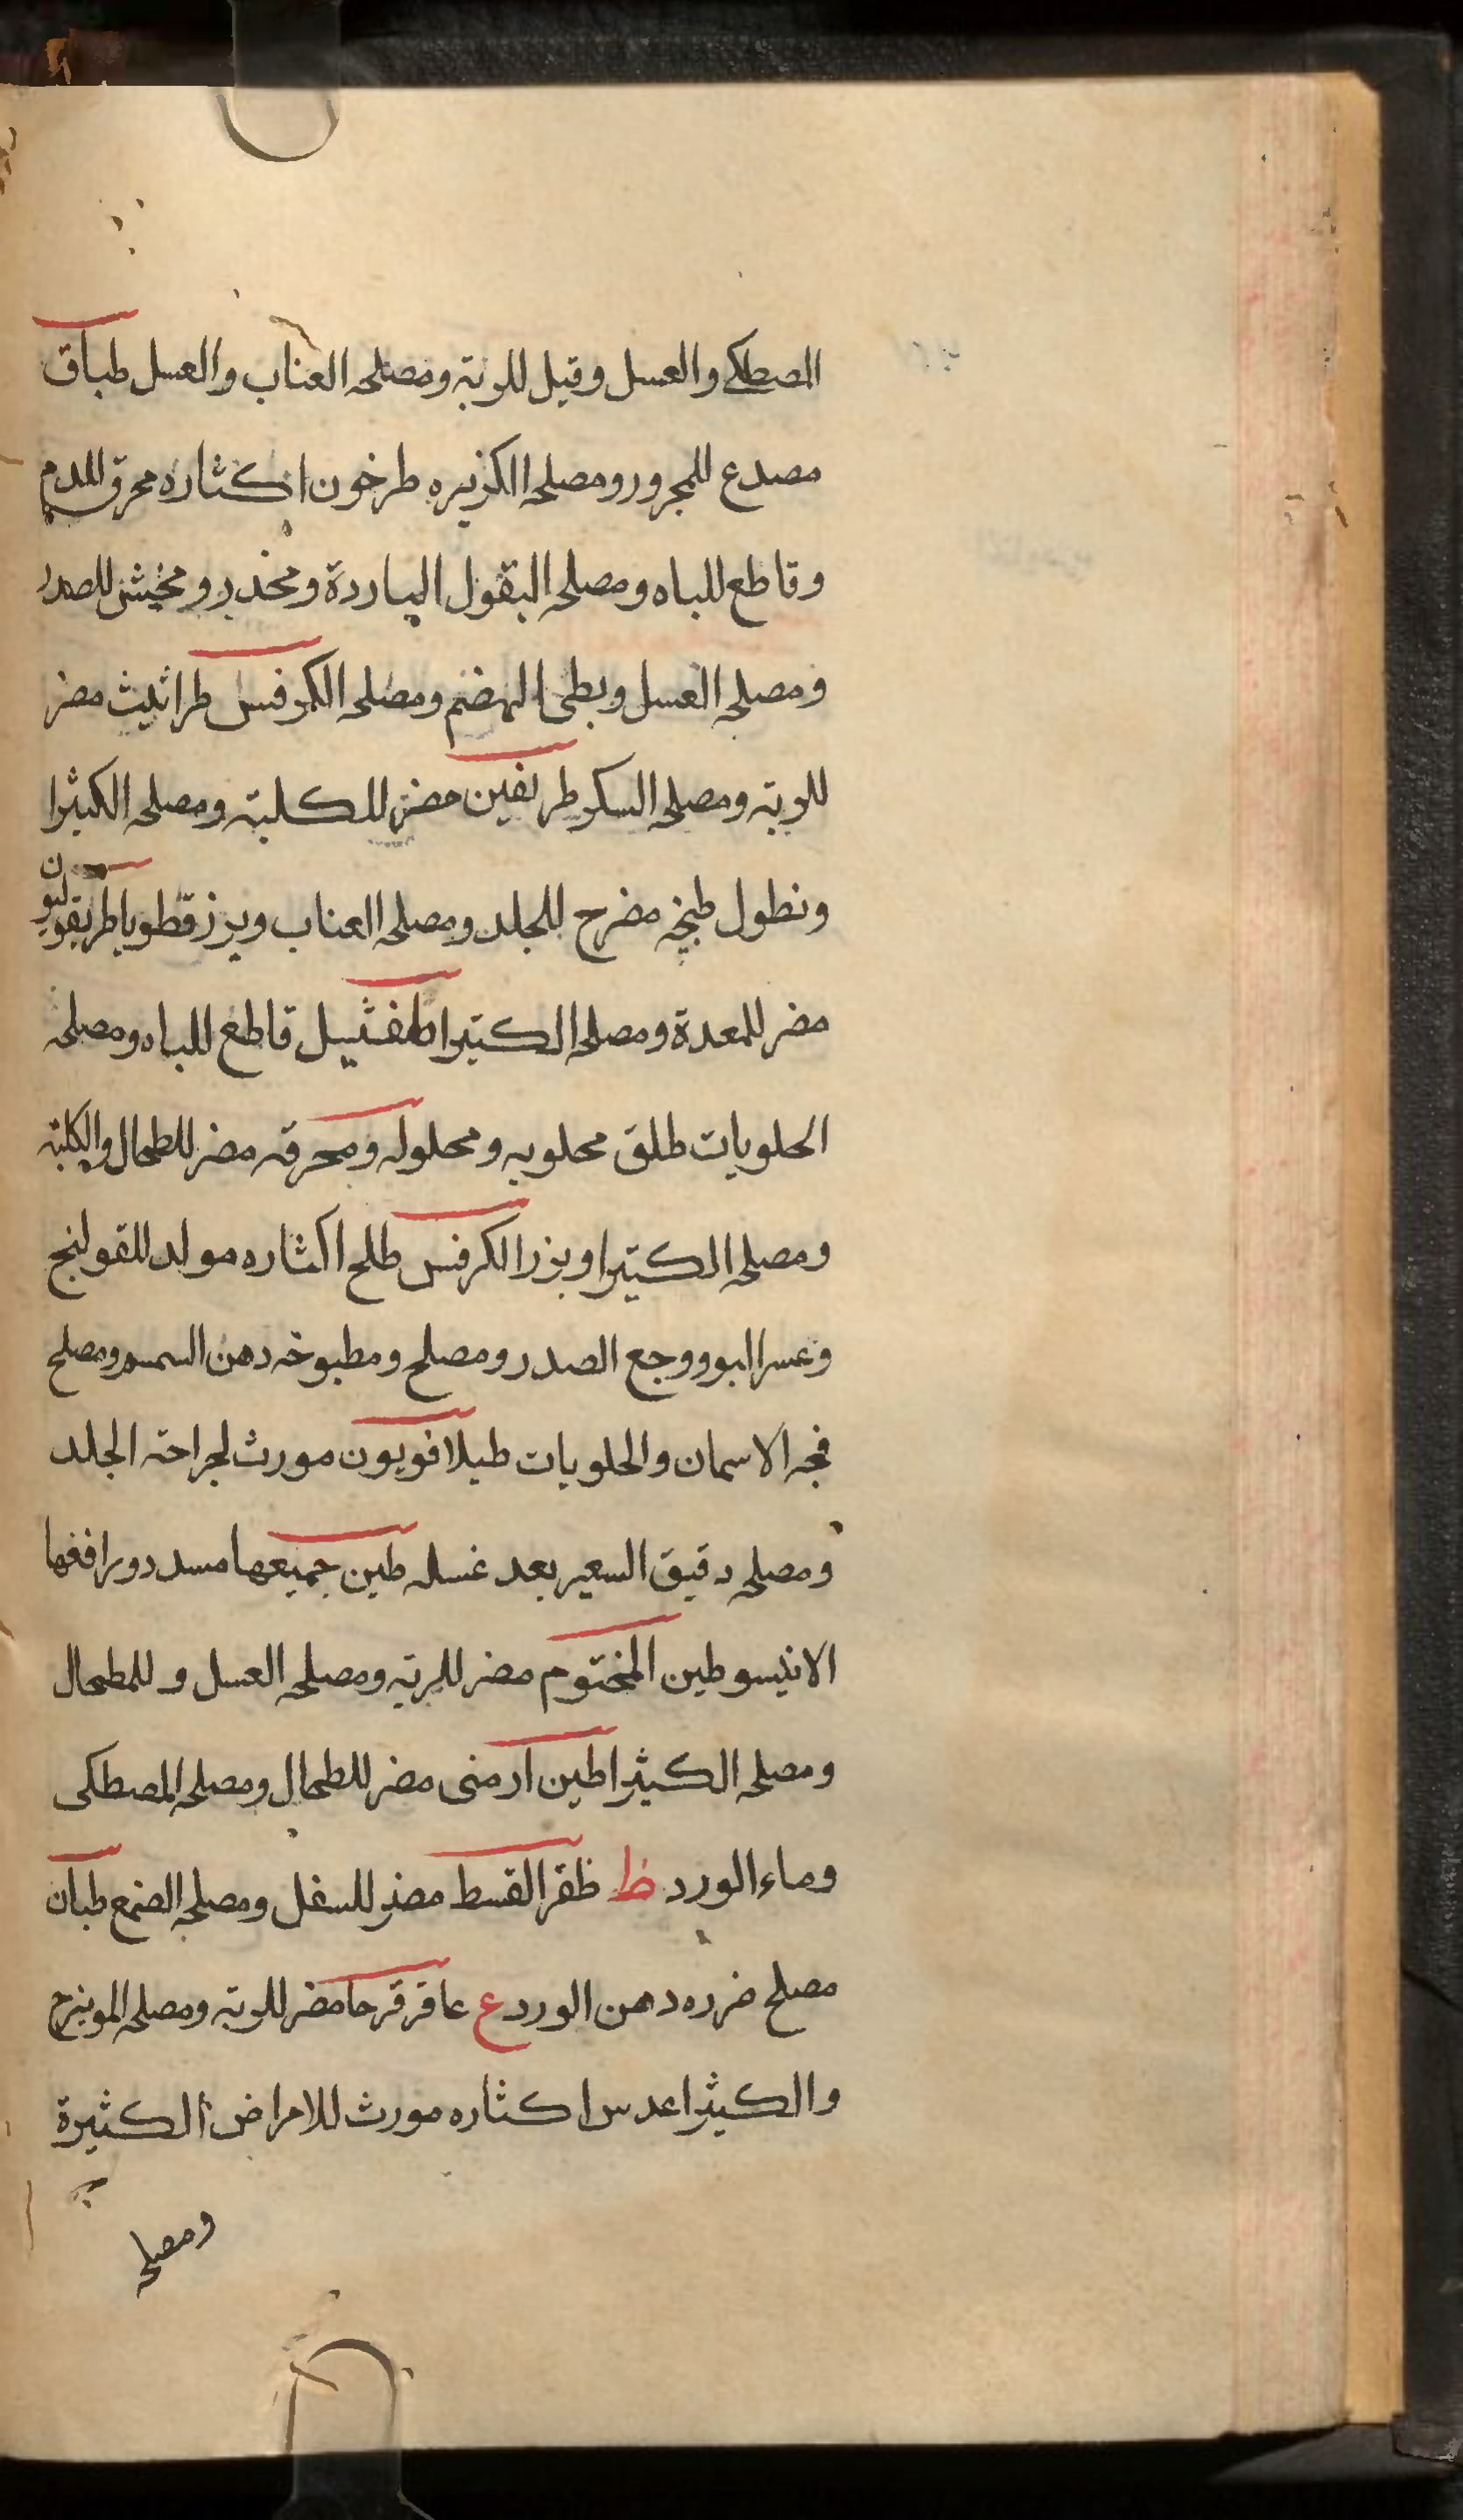 المصطكى والعسل وقيل للريه ومصلحه العناب والعسل طباق
مصدع للمحرور ومصلحه الكزبره طرخون اكثاره محرق للدم
وقاطع للباه ومصلحه البقول الباردة ومخدر ومخشن للصدر
ومصلحه العسل وبطى الهضم ومصلحه الكرفس طراثيث مضر
للريه ومصلحه السكر طريفين مضر للكليته ومصلحه الكثيرا
ونطول طبخه مضرح للجلد ومصلحه العناب وبزر قطونا طريقوليون
مضر للمعدة ومصلحه الكتيرا طفشيل قاطع للباه ومصلحه
الحلويات طلق محلوبه ومحلوله ومحرقه مضر للطحال والكليته
ومصلحه الكتيرا وبزر الكرفس طلح اكثاره مولد للقولنج
وعسر البو ووجع الصدر ومصلح ومطبوخه دهن السمسم ومصلح
فجه الاسمان والحلويات طيلافويون مورث لجراحته الجلد
ومصلحه دقيق السعير بعد غسله طين جميعها مسدد ورافعها
الانيسو طين المختوم مضر للريه ومصلحه العسل وللمطحال
ومصلحه الكيثرا طين ارمنى مضر للطحال ومصلحه المصطكى
وماء الورد ظ ظفر القسط مضر للسفل ومصلحه الصمغ طبان
مصلح ضرره دهن الورد ع عاقر قرحا مضر للريه ومصلحه المويزج
والكيثرا عدس اكثاره مورث للامراض الكثيرة
ومصلحه